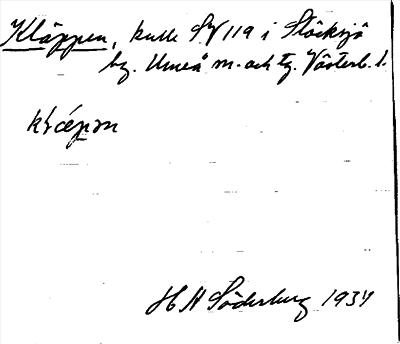 Kläppen, kulle SV 119 i Stöcksjö
by. Umeå m. och tg. Västerb. l.
H H Söderberg 1934